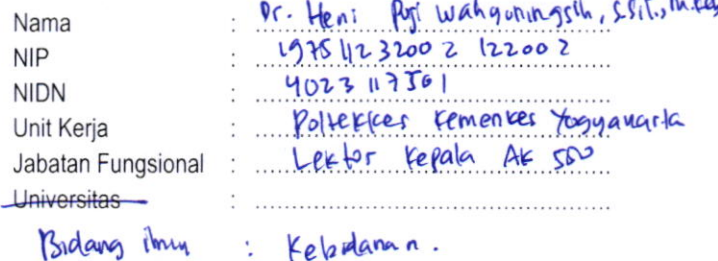 Nama : Dr. Heni Puji Wahyuningsih, S.SiT., M.Kes
NIP : 197511232002 122002
NIDN : 4023117501
Unit Kerja : Poltekkes Kemenkes Yogyakarta
Jabatan Fungsional : Lektor Kepala AK 550
Universitas :
Bidang ilmu : Kebidanan.